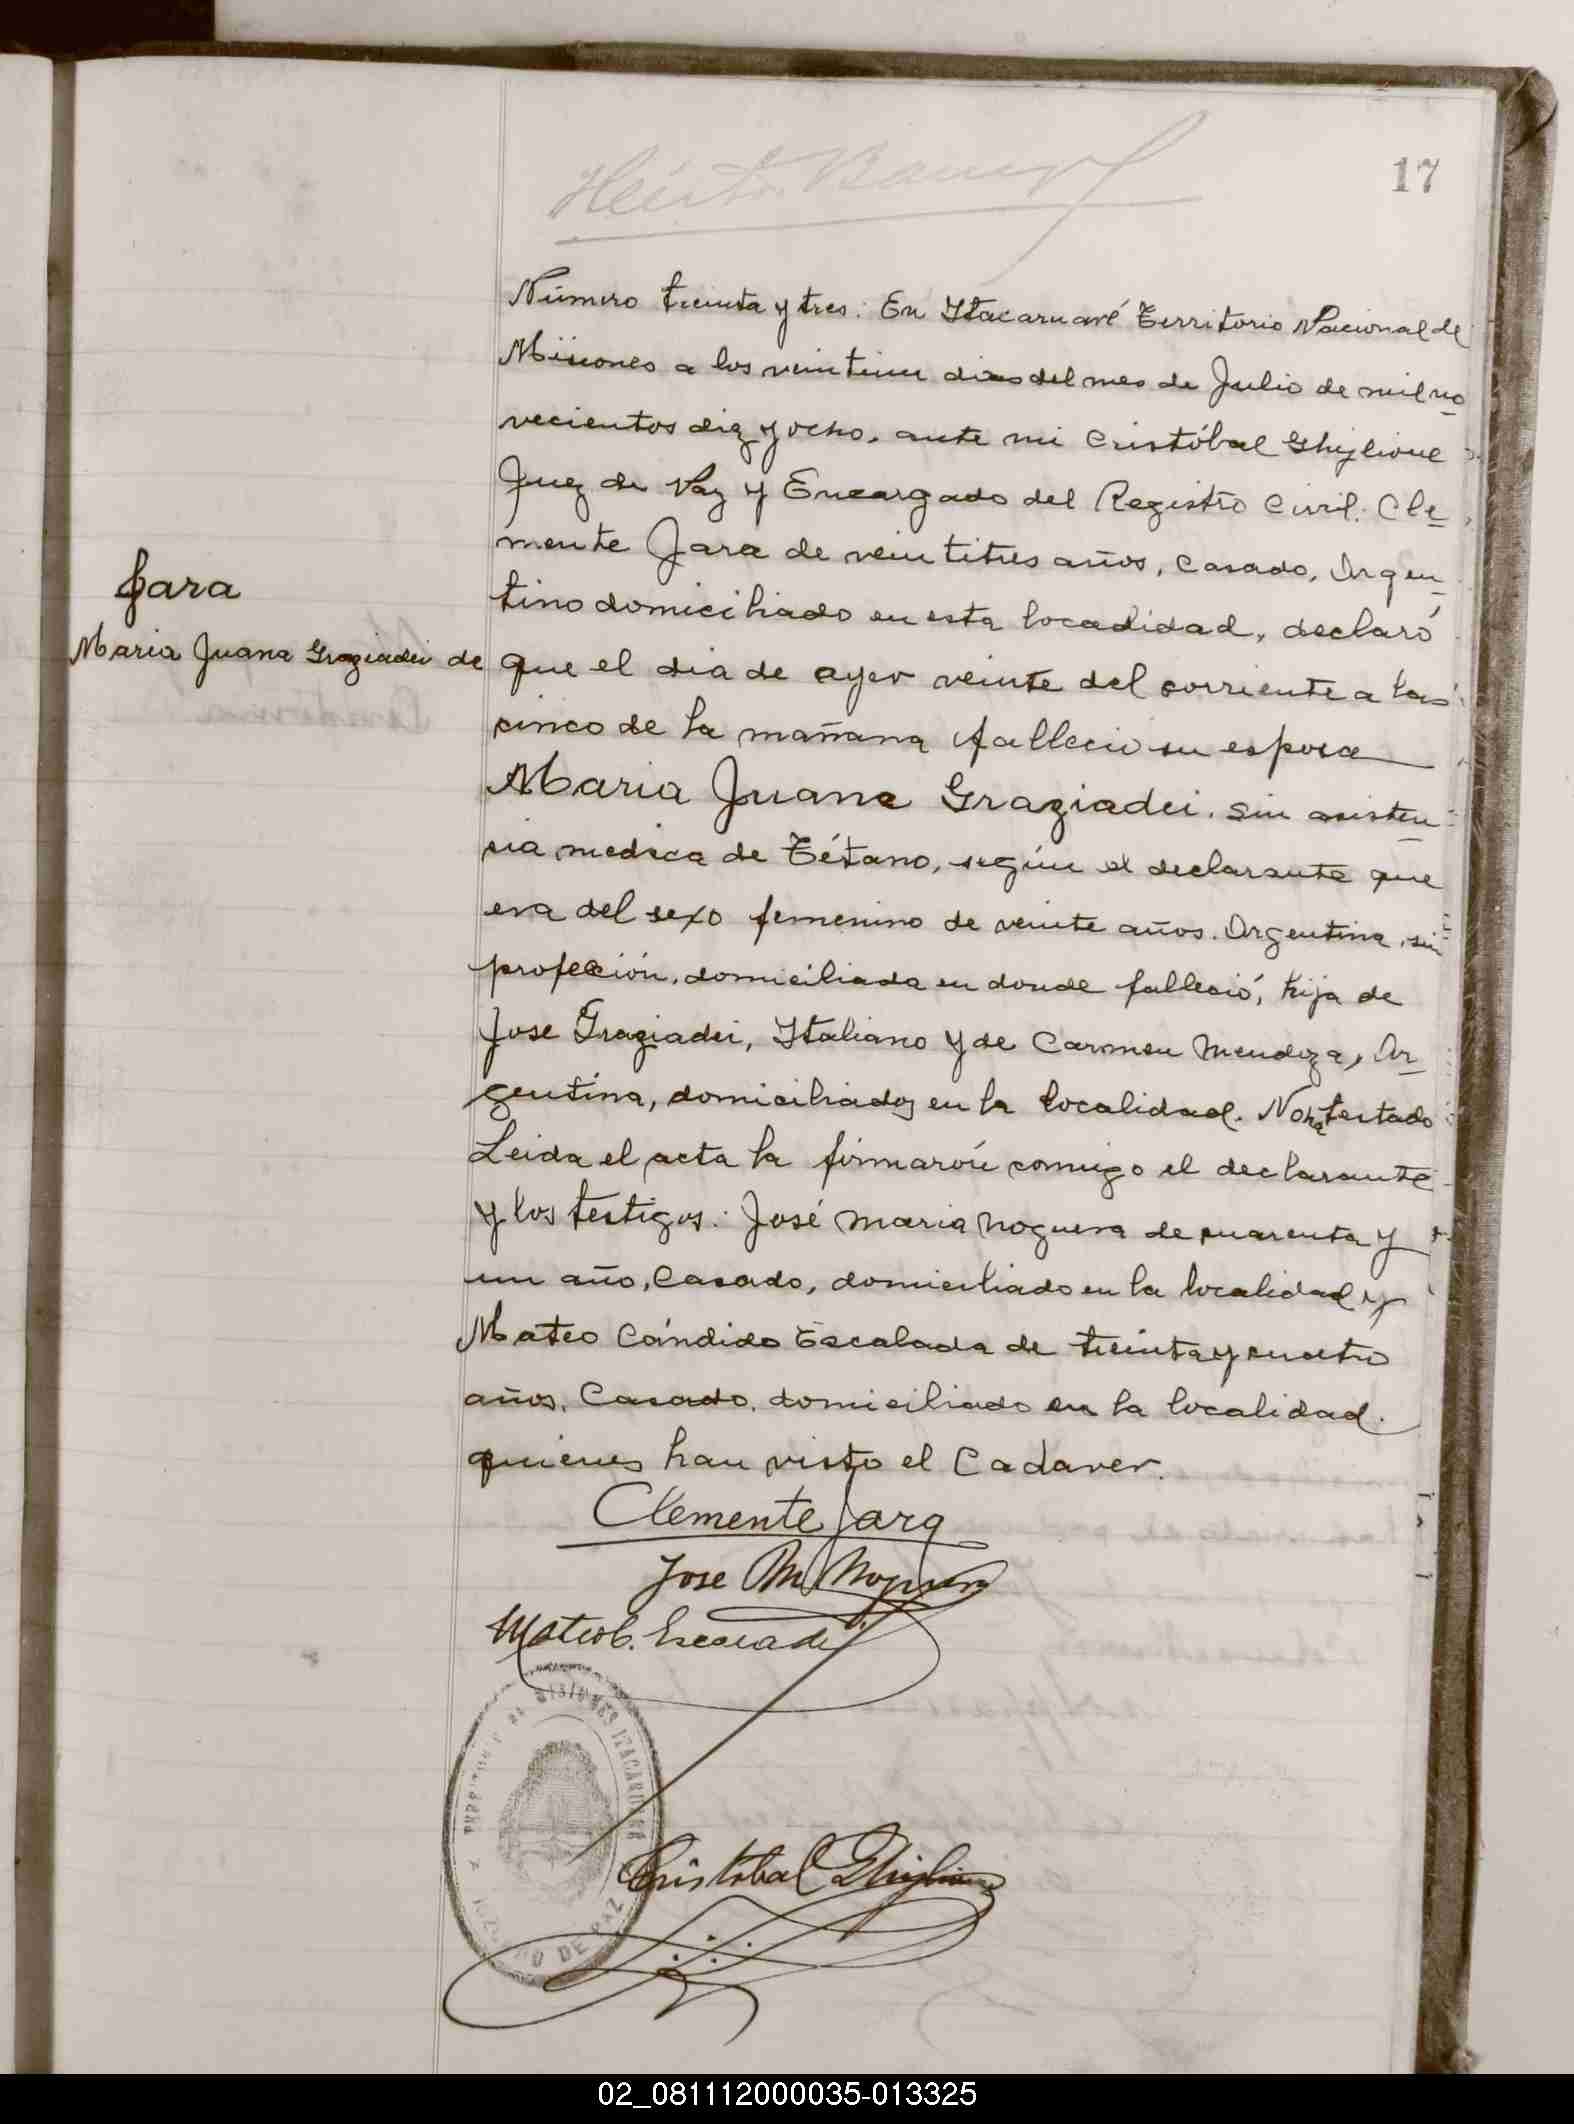 17
Número treinta y tres: En Itacaruaré Territorio Nacional de
Misiones a los veintiun dias del mes de Julio de mil no-
vecientos diez y ocho, ante mi Cristóbal Ghiglione
Juez de Paz y Encargado del Registro Civil: Cle-
mente Jara de veintitres años, casado, Argen-
tino domiciliado en esta locadidad, declaró
que el dia de ayer veinte del corriente a las
cinco de la mañana falleció su esposa
Maria Juana Graziadei. sin asisten-
cia medica de Tétano, según el declarante que
era del sexo femenino de veinte años. Argentina, sin
profeción, domiciliada en donde falleció, hija de
Jose Graziadei, Italiano y de Carmen Mendoza, Ar-
gentina, domiciliados en la localidad. No ha testado
Leida el acta la firmarón comigo el declarante
y los testigos: José Maria Noguera de cuarenta y
un año, Casado, domiciliado en la localidad y
Mateo Cándido Escalada de treinta y cuatro
años, Casado, domiciliado en la localidad.
quienes han visto el Cadaver.
Jara
Maria Juana Graziadei de
Clemente Jara
Jose M Noguera
Mateo C. Escalada
MISIONES ITACARUARÉ
JUZGADO DE PAZ
Cristobal Ghiglione
02_081112000035-013325